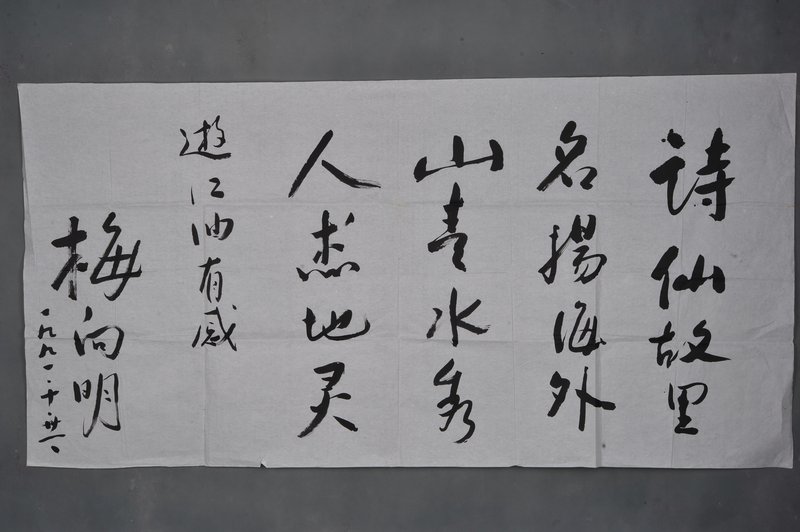 詩仙故里
名揚海外
山青水秀
人杰地灵
遊江油有感
梅向明
一九九一·十·卅一、